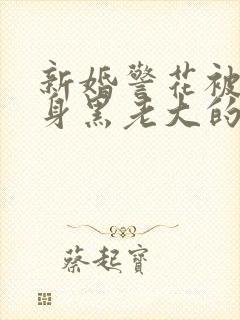 新婚警花被
身黑老大的
蔡起寳